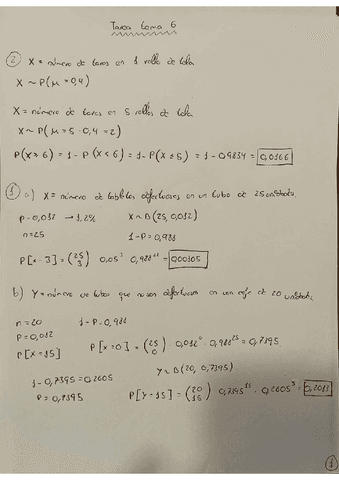 Tarea tema 6
② X = número de taras en 1 rollo de tela
X ~ P(μ = 0,4)
X = número de taras en 5 rollos de tela
X ~ P(μ = 5 · 0,4 = 2)
P(X ≥ 6) = 1 - P(X < 6) = 1 - P(X ≤ 5) = 1 - 0,9834 = 0,0166
① a) X = número de tabletas defectuosas en un tubo de 25 unidades.
P = 0,012 → 1,2% X ~ B(25, 0,012)
n = 25 1 - P = 0,988
P[X = 3] = (25 3) 0,05³ 0,988²² = 0,00305
b) Y = número de tubos que no son defectuosos en un caja de 20 unidades.
n = 20 1 - P = 0,988
P = 0,012
P[X = 15] P[X = 0] = (25 0) · 0,012⁰ · 0,988²⁵ = 0,7395
1 - 0,7395 = 0,2605 Y ~ B(20, 0,7395)
P = 0,7395 P[Y = 15] = (20 15) 0,7395¹⁵ · 0,2605⁵ = 0,2013
1